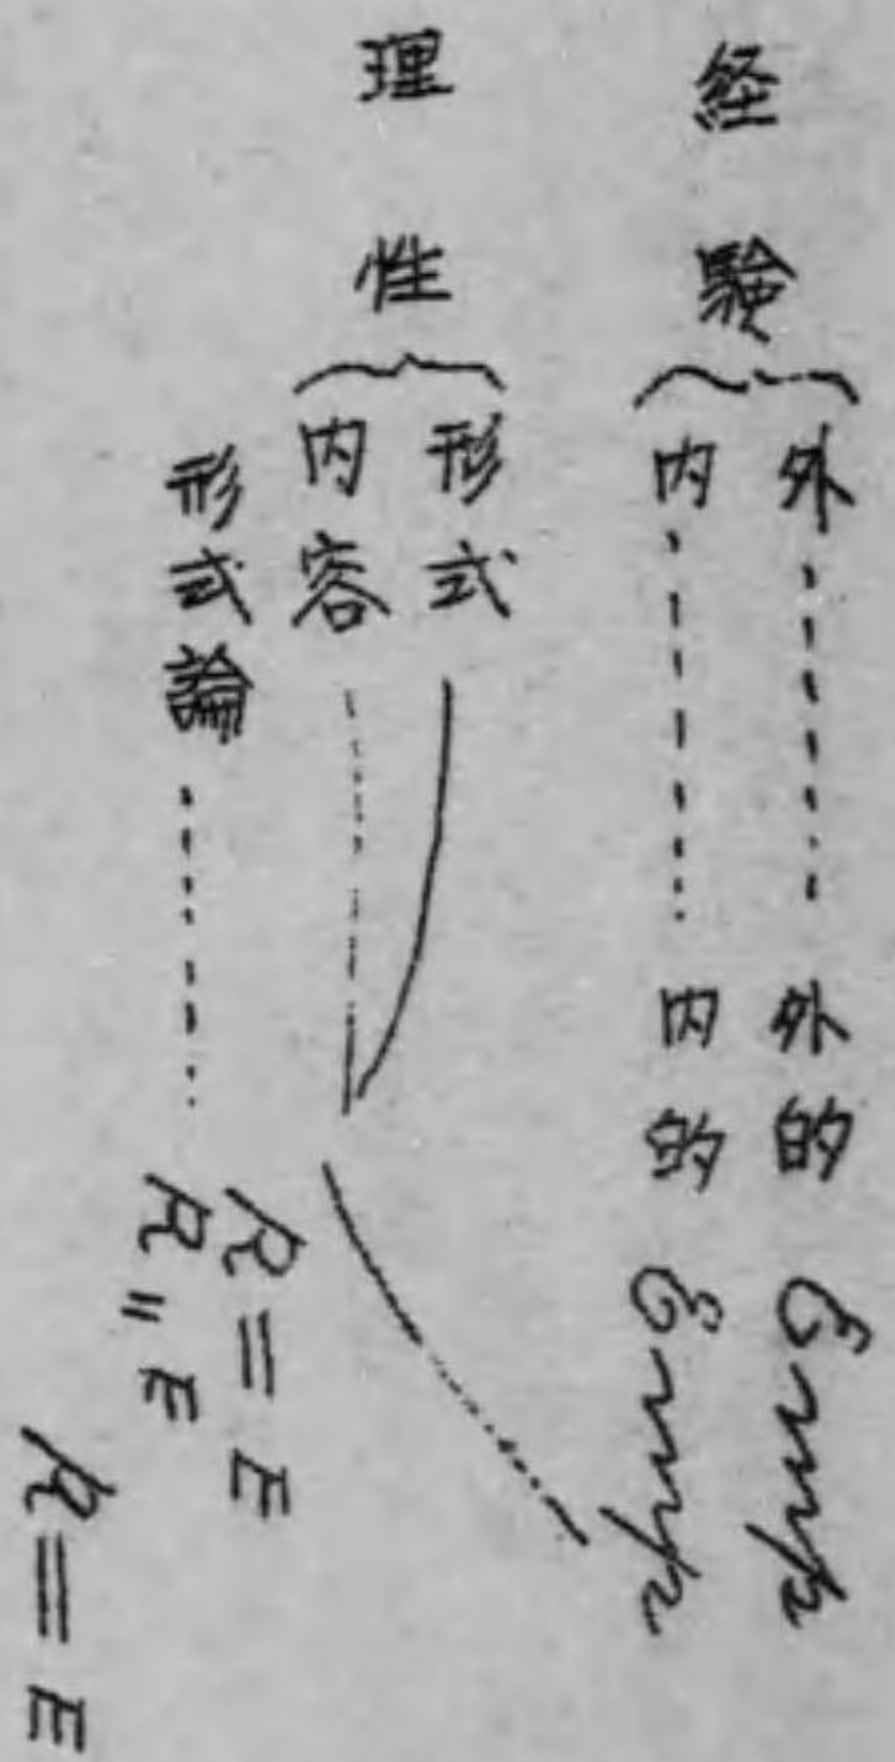 経験
外 外的 Emp
内 内的 Emp
理性
形式
内容
R=E
形式論 R〃E
R=E